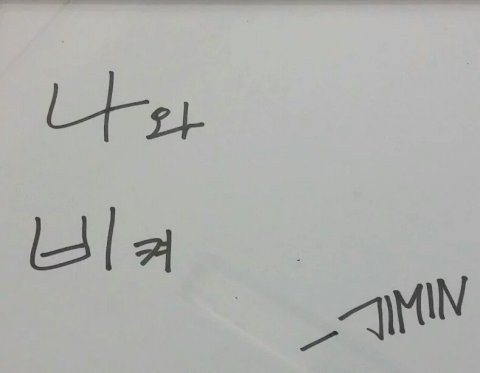 나와
비켜
-JIMIN